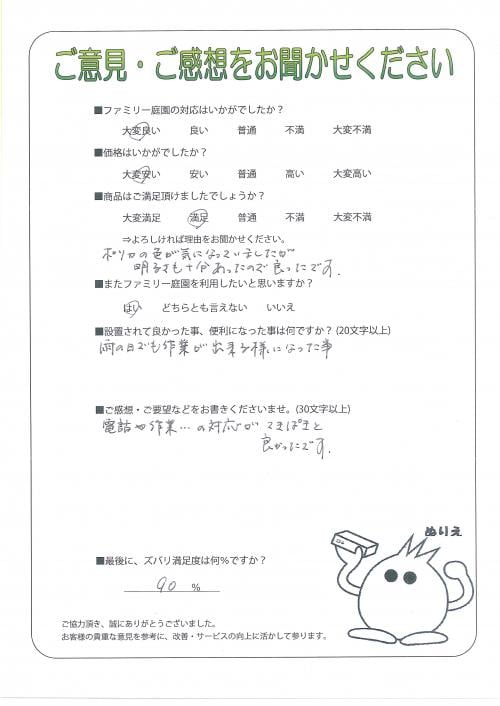 ご意見・ご感想をお聞かせください
■ファミリー庭園の対応はいかがでしたか？
大変良い 良い 普通 不満 大変不満
■価格はいかがでしたか？
大変安い 安い 普通 高い 大変高い
■商品はご満足頂けましたでしょうか？
大変満足 満足 普通 不満 大変不満
⇒よろしければ理由をお聞かせください。
ポリカの色が気になっていましたが
明るさも十分あったので良ったです.
■またファミリー庭園を利用したいと思いますか？
はい どちらとも言えない いいえ
■設置されて良かった事、便利になった事は何ですか？(20文字以上)
雨の日でも作業が出来る様になった事
■ご感想・ご要望などをお書きくださいませ。(30文字以上)
電話や作業…の対応がてきぱきと
良かったです.
ぬりえ
■最後に、ズバリ満足度は何%ですか？
90 %
ご協力頂き、誠にありがとうございました。
お客様の貴重な意見を参考に、改善・サービスの向上に活かして参ります。